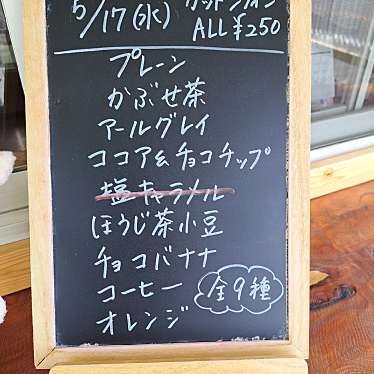 5/17(水) カットシフォン
ALL ¥250
プレーン
かぶせ茶
アールグレイ
ココア&チョコチップ
塩キャラメル
ほうじ茶小豆
チョコバナナ
コーヒー
オレンジ
全9種